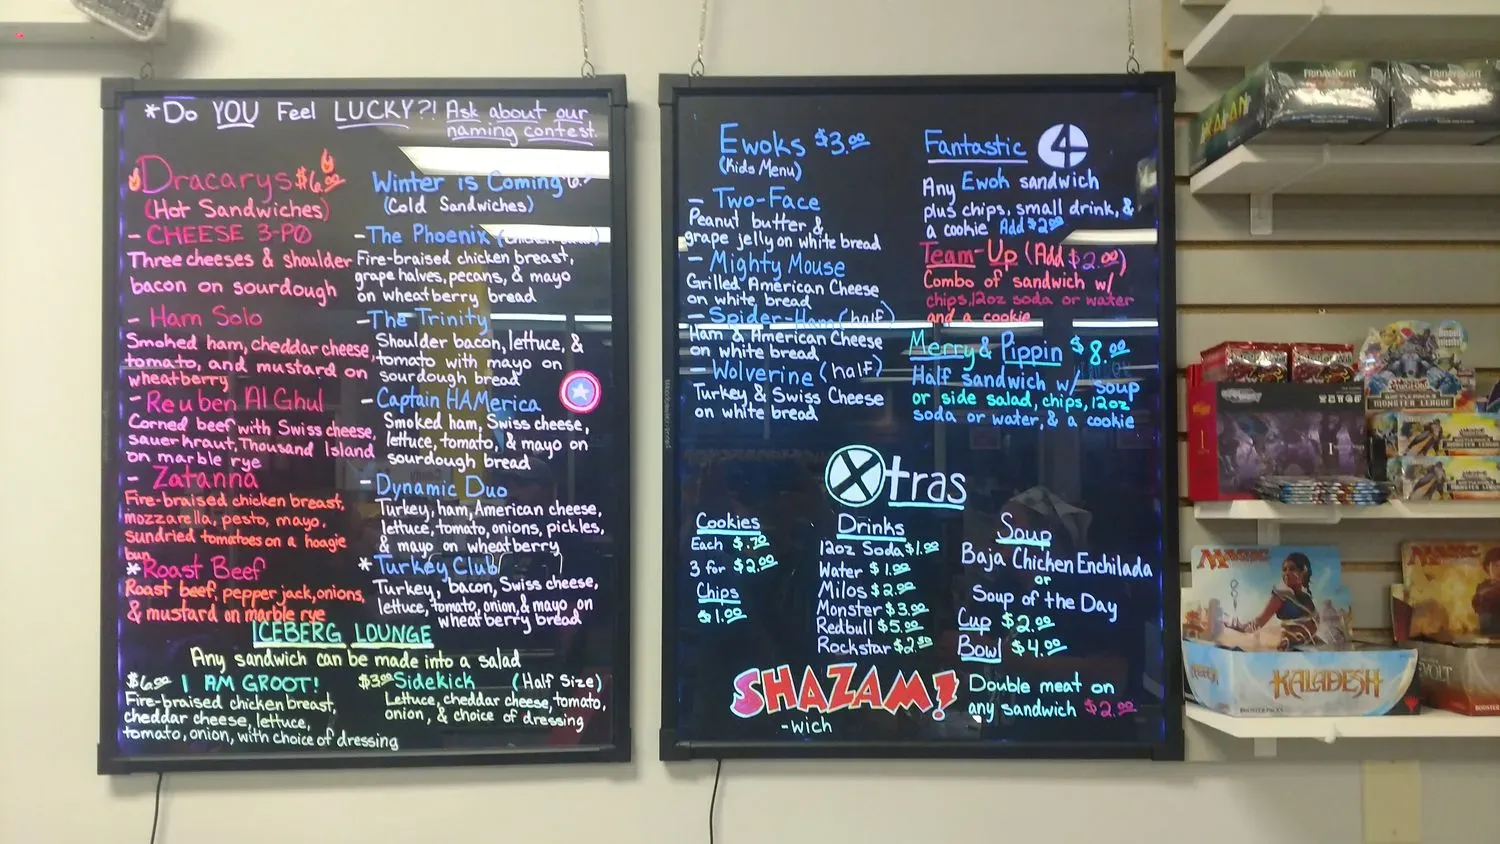 *Do YOU Feel LUCKY?! Ask about our
naming contest.
Dracarys $6.00
(Hot Sandwiches)
- CHEESE 3-PO
Three cheeses & shoulder
bacon on sourdough
- Ham Solo
Smoked ham, cheddar cheese,
tomato, and mustard on
wheatberry
- Reuben Al Ghul
Corned beef with Swiss cheese,
sauerkraut, Thousand Island
on marble rye
- Zatanna
Fire-braised chicken breast,
mozzarella, pesto, mayo,
sundried tomatoes on a hoagie
bun
*Roast Beef
Roast beef, pepper jack, onions,
& mustard on marble rye
Winter is Coming
(Cold Sandwiches)
- The Phoenix
Fire-braised chicken breast,
grape halves, pecans, & mayo
on wheatberry bread
- The Trinity
Shoulder bacon, lettuce, &
tomato with mayo on
sourdough bread
- Captain HAMerica
Smoked ham, Swiss cheese,
lettuce, tomato, & mayo on
sourdough bread
- Dynamic Duo
Turkey, ham, American cheese,
lettuce, tomato, onions, pickles,
& mayo on wheatberry
* Turkey Club
Turkey, bacon, Swiss cheese,
lettuce, tomato, onion, & mayo on
wheatberry bread
ICEBERG LOUNGE
Any sandwich can be made into a salad
$6.00 I AM GROOT!
Fire-braised chicken breast,
cheddar cheese, lettuce,
tomato, onion, with choice of dressing
$3.00 Sidekick (Half Size)
Lettuce, cheddar cheese, tomato,
onion, & choice of dressing
Ewoks $3.00
(Kids Menu)
- Two-Face
Peanut butter &
grape jelly on white bread
- Mighty Mouse
Grilled American Cheese
on white bread
- Spider-Ham (half)
Ham & American Cheese
on white bread
- Wolverine (half)
Turkey & Swiss Cheese
on white bread
Fantastic 4
Any Ewok sandwich
plus chips, small drink, &
a cookie Add $2.00
Team-Up (Add $2.00)
Combo of sandwich w/
chips, 12oz soda or water
and a cookie
Merry & Pippin $8.00
Half sandwich w/ soup
or side salad, chips, 12oz
soda or water, & a cookie
Xtras
Cookies
Each $.70
3 for $2.00
Chips
$1.00
Drinks
12oz Soda $1.00
Water $1.00
Milos $2.00
Monster $3.00
Redbull $5.00
Rockstar $2.50
Soup
Baja Chicken Enchilada
or
Soup of the Day
Cup $2.00
Bowl $4.00
SHAZAM!
-wich
Double meat on
any sandwich $2.00
FRIDAY NIGHT
MONSTER LEAGUE
MAGIC
KALADESH
BOOSTER PACKS